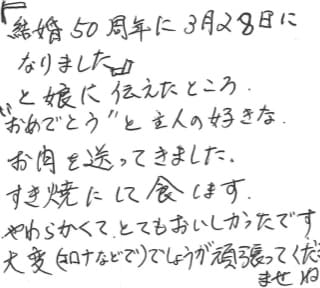 『結婚50周年に3月28日に
なりました』
と娘に伝えたところ.
"おめでとう"と主人の好きな.
お肉を送ってきました。
すき焼にして食します.
やわらかくて、とてもおいしかったです
大変(コロナなどで)でしょうが頑張ってくださ
ませね